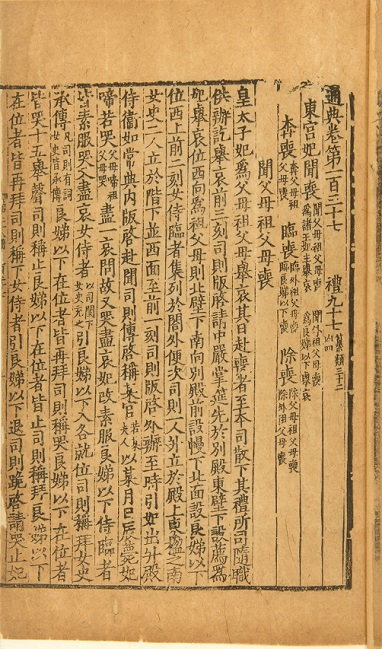 通典卷第一百三十七 禮九十七 纂類三十二 凶四
東宮妃聞喪 聞父母祖父母喪 聞外祖父母喪 爲諸王妃主舉哀 爲良娣以下舉哀
奔喪 奔父母祖父母喪 臨喪 臨外祖父母喪 臨良娣以下喪 除喪 除父母祖父母喪 除外祖父母喪
聞父母祖父母喪
皇太子妃爲父母祖父母舉哀其日赴喪者至本司散下其禮所司隨職
供辦訖舉哀前三刻司則版啓請中嚴掌筵先於别殿東壁下設薦爲
妃舉哀位西向爲祖父母則北壁下南向別殿前設幔下北面設良娣以下
位西上前二刻女侍臨者集列於閤外便次司則二人分立於殿上東楹之南
女史二人立於階下並西面至前一刻司則版啓外辦至時引妃出升殿
侍衞如常典內版啓赴聞司則傳啓稱某官若某夫人以某月日辰薨妃
啼若哭 父母啼祖父母哭 盡哀問故又哭盡哀妃改素服良娣以下侍臨者
皆素服哭人盡哀女侍者 以司閨下女史充之 引良娣以下入各就位司則稱拜女史
承傳 凡司則有詞女史皆承傳 良娣以下在位者皆再拜司則稱哭良娣以下在位者
皆哭十五舉聲司則稱止良娣以下在位者皆止司則稱拜良娣以下
在位者皆再拜司則稱下女侍者引良娣以下退司則跪啓請哭止妃